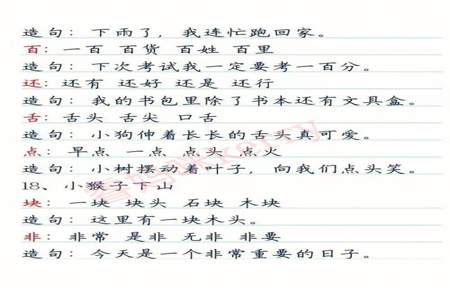 造句：下雨了，我连忙跑回家。
百：一百 百货 百姓 百里
造句：下次考试我一定要考一百分。
还：还有 还好 还是 还行
造句：我的书包里除了书本还有文具盒。
舌：舌头 舌尖 口舌
造句：小狗伸着长长的舌头真可爱。
点：早点 一点 点头 点火
造句：小树摆动着叶子，向我们点头笑。
18、小猴子下山
块：一块 块头 石块 木块
造句：这里有一块木头。
非：非常 是非 无非 非要
造句：今天是一个非常重要的日子。